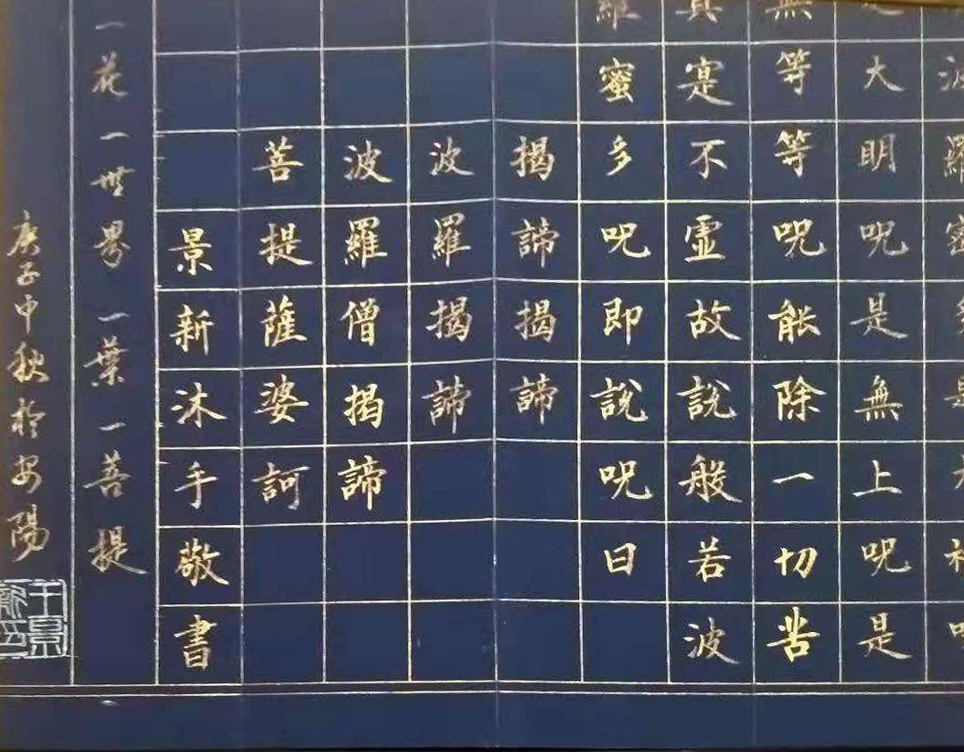 波羅密多是大神呪
是大明呪是無上呪是
無等等呪能除一切苦
真寔不虛故說般若波
羅蜜多呪即說呪曰
揭諦揭諦
波羅揭諦
波羅僧揭諦
菩提薩婆訶
景新沐手敬書
一花一世界一葉一菩提
庚子中秋於安陽
王景新印